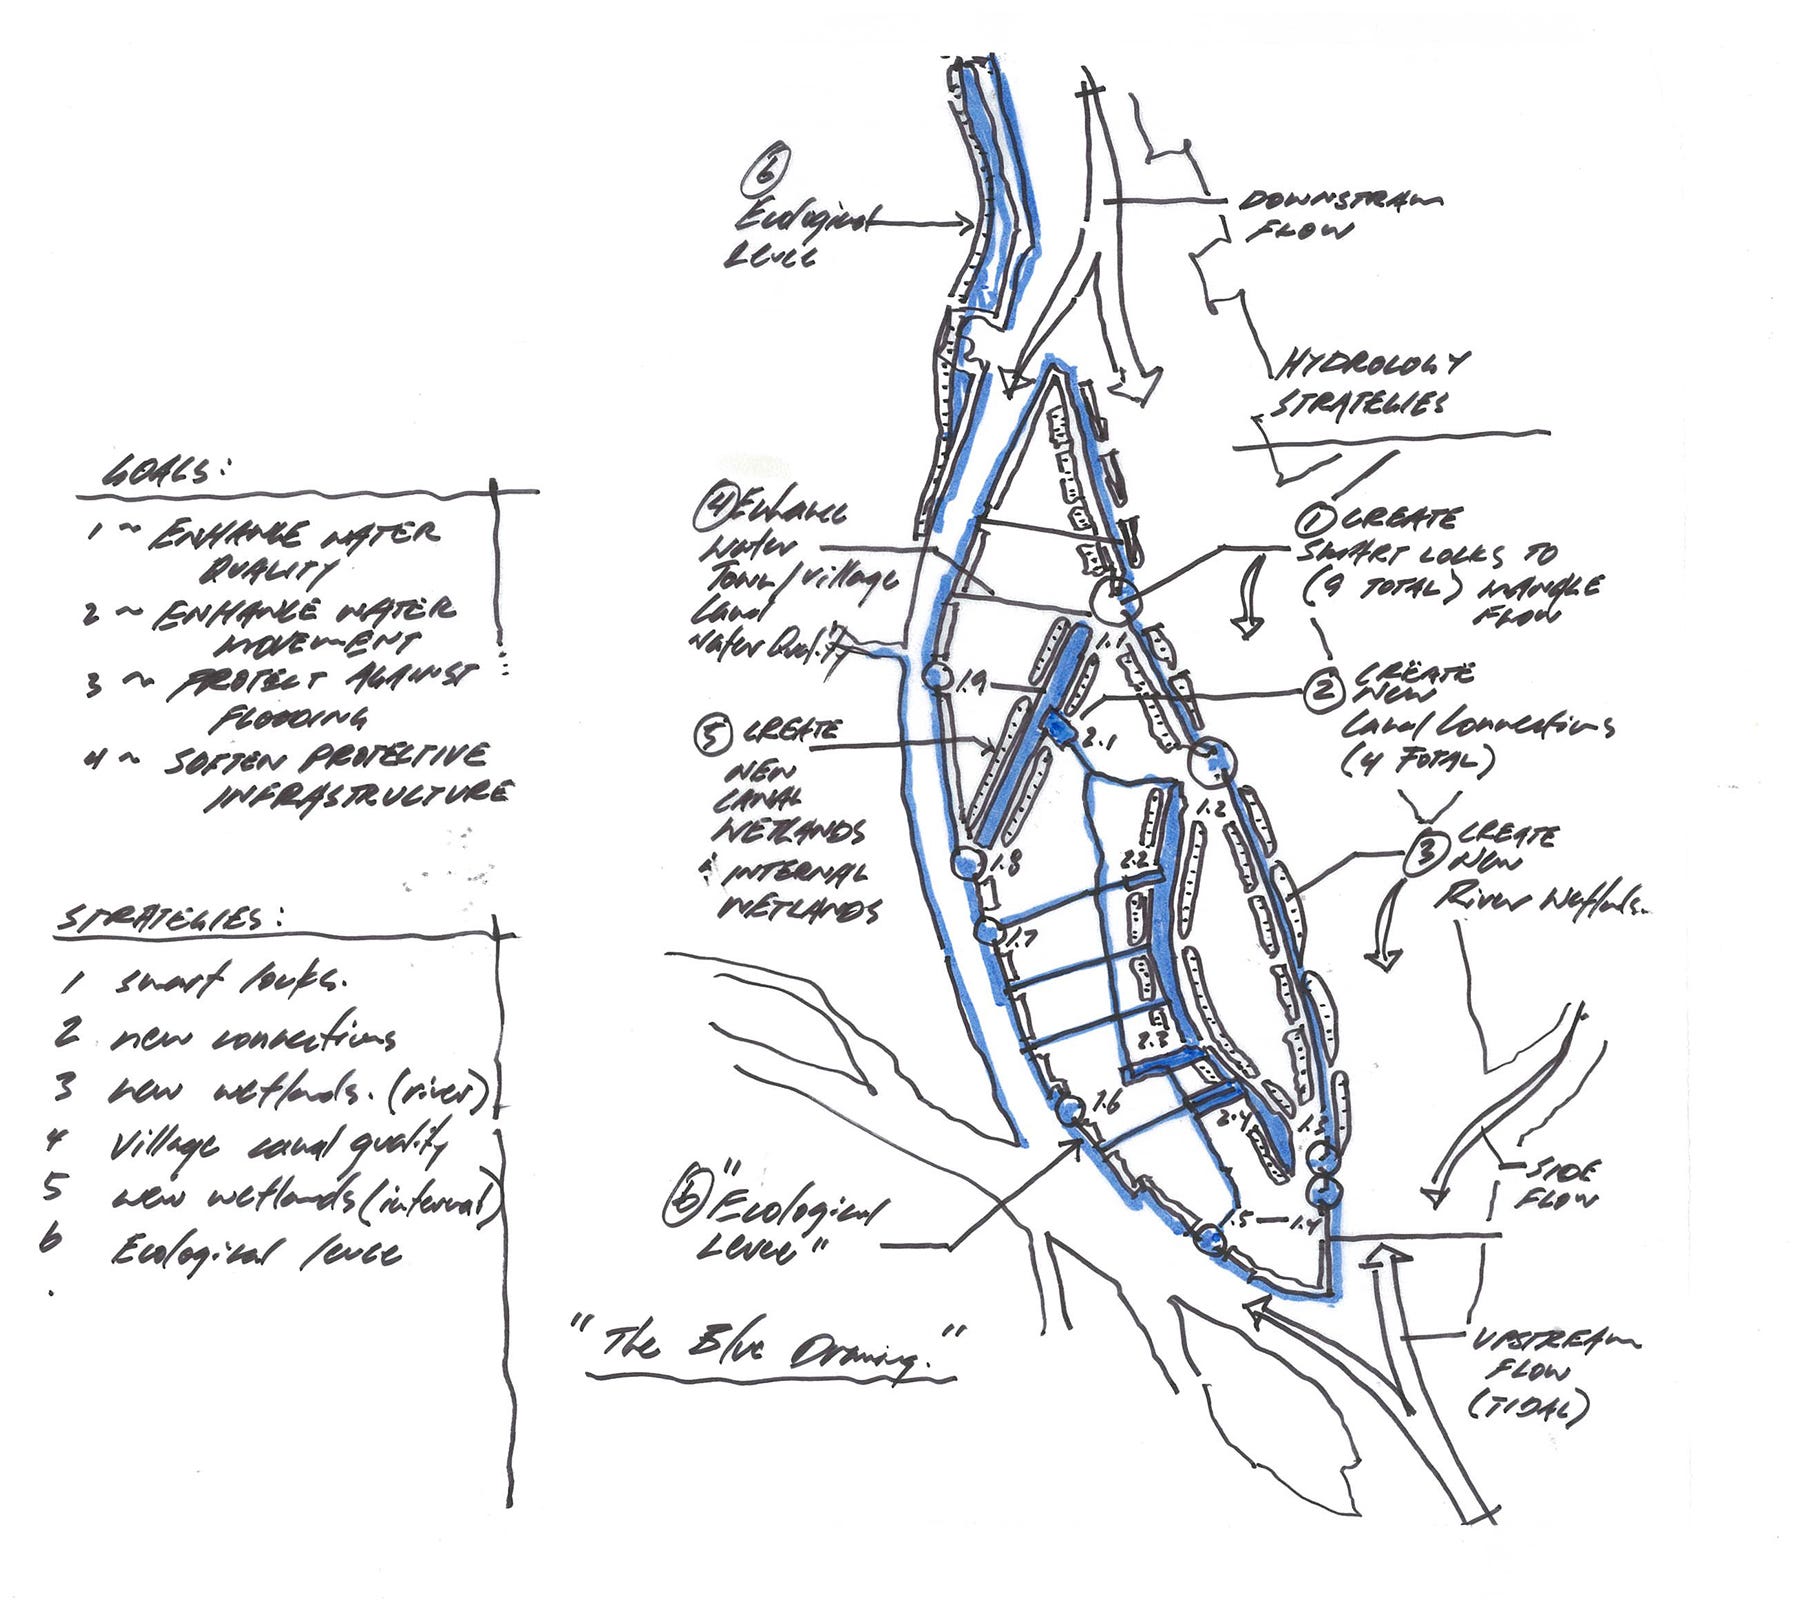 GOALS:
1 ~ ENHANCE WATER
QUALITY
2 ~ ENHANCE WATER
MOVEMENT
3 ~ PROTECT AGAINST
FLOODING
4 ~ SOFTEN PROTECTIVE
INFRASTRUCTURE
STRATEGIES:
1 smart locks.
2 new connections
3 new wetlands. (river)
4 Village canal quality
5 new wetlands (internal)
6 Ecological levee
6
Ecological
Levee
4 Enhance
Water
Town/village
Canal
Water Quality
5 CREATE
NEW
CANAL
WETLANDS
& INTERNAL
WETLANDS
6 "Ecological
Levee"
"The Blue Drawing."
1.1
1.9
2.1
1.2
1.8
2.2
1.7
2.3
1.6
2.4
1.3
1.5 — 1.4
DOWNSTRAM
FLOW
HYDROLOGY
STRATEGIES
1 CREATE
SMART LOCKS TO
(9 TOTAL) MANGLE
FLOW
2 CREATE
NEW
Canal Connections
(4 TOTAL)
3 CREATE
NEW
River Wetlands.
SIDE
FLOW
UPSTREAM
FLOW
(TIDAL)